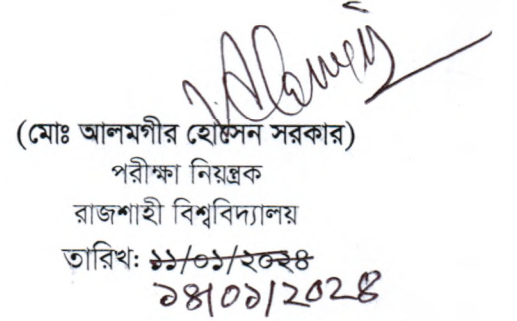 (মোঃ আলমগীর হোসেন সরকার)
পরীক্ষা নিয়ন্ত্রক
রাজশাহী বিশ্ববিদ্যালয়
তারিখ: ১১/০১/২০২৪
১৪/০১/২০২৪